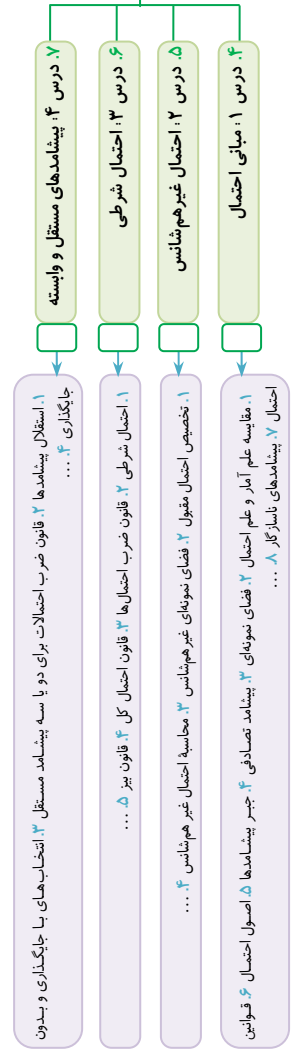 ۴. درس ۱: مبانی احتمال
۱. مقایسه علم آمار و علم احتمال ۲. فضای نمونه‌ای ۳. پیشامد تصادفی ۴. جبر پیشامدها ۵. اصول احتمال ۶. قوانین
احتمال ۷. پیشامدهای ناسازگار ۸. ...
۵. درس ۲: احتمال غیرهم‌شانس
۱. تخصیص احتمال مقبول ۲. فضای نمونه‌ای غیرهم‌شانس ۳. محاسبهٔ احتمال غیر هم‌شانس ۴. ...
۶. درس ۳: احتمال شرطی
۱. احتمال شرطی ۲. قانون ضرب احتمال‌ها ۳. قانون احتمال کل ۴. قانون بیز ۵. ...
۷. درس ۴: پیشامدهای مستقل و وابسته
۱. استقلال پیشامدها ۲. قانون ضرب احتمالات برای دو یا سه پیشامد مستقل ۳. انتخاب‌های با جایگذاری و بدون
جایگذاری ۴. ...